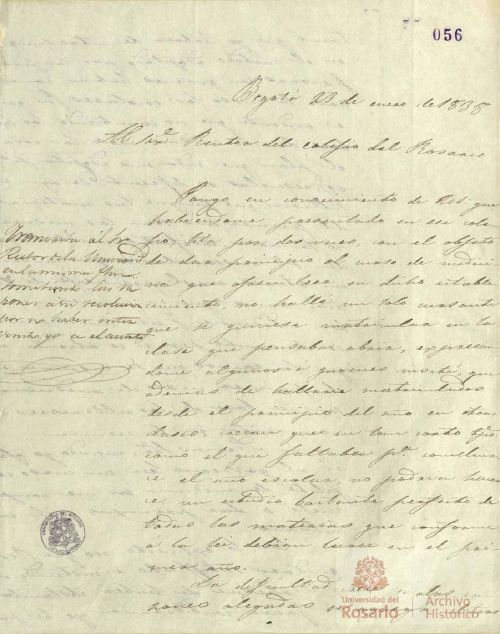 056
Bogotá 23 de enero de 1838
Al Sor. Rector del colegio del Rosario
Pongo en conocimiento de Ud. que
habiéndome presentado en ese cole-
gio hta por dos veces, con el objeto
de dar principio al curso de medici-
na que ofrecí leer en dicho estable-
cimiento no hallé un solo cursante
que se quisiese matricular en la
clase que pensaba abrir, expresan-
dome algunos a quienes
ademas de hallarse matriculados
desde el principio del año en otras
clases, creian que en tan corto
como el que faltaba pa. concluir-
se el año escolar, no podrian hacer-
se un estudio bastante perfecto de
todas las materias que conforme
a la lei debian leerse en el pri-
mer año.
La dificultad
zones alegadas
Transcrita al Sr
Rector de la Universidad
por no haber inter
venido yo en el asunto
Universidad del
Rosario
Archivo
Histórico